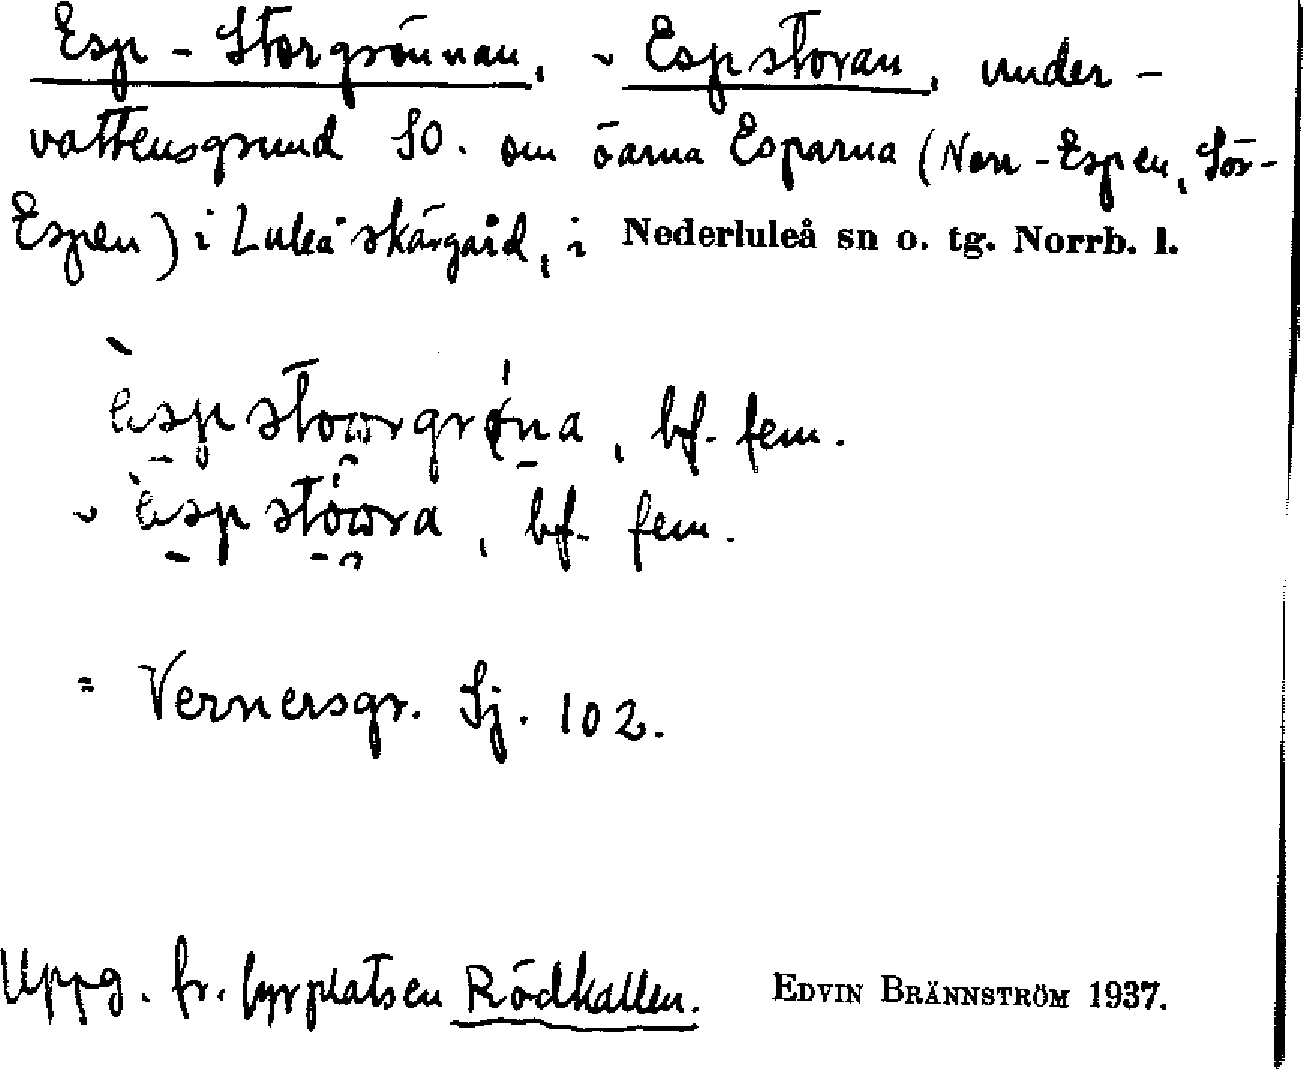 Esp-Storgrönnan, ~ Espstoran, under-
vattensgrund SO. om öarna Esparna (Norr-Espen, Sör-
Espen) i Luleå skärgård, i Nederluleå sn o. tg. Norrb. l.
bf. fem.
bf. fem.
= Vernersgr. Sj. 102.
Uppg. fr. fyrplatsen Rödkallen. EDVIN BRÄNNSTRÖM 1937.